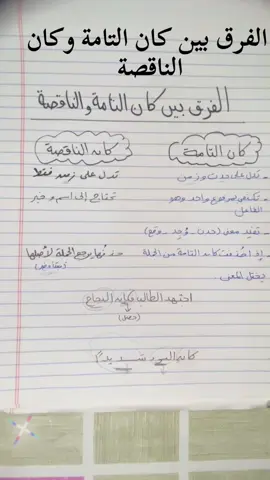 الفرق بين كان التامة وكان
الناقصة
الفرق بين كان التامة والناقصة
كان التامة
كان الناقصة
- تدل على حدث وزمن
تدل على زمن فقط
- تكتفي بمرفوع واحد وهو الفاعل
تحتاج إلى اسم و خبر
- تفيد معنى (حدث - وُجِد - وقع)
- إذا حُذفت كان التامة من الجملة يختل المعنى
حذفها يرجع الجملة لأصلها
اجتهد الطالب فكان النجاح
(حصل)
كان البرد شديدًا